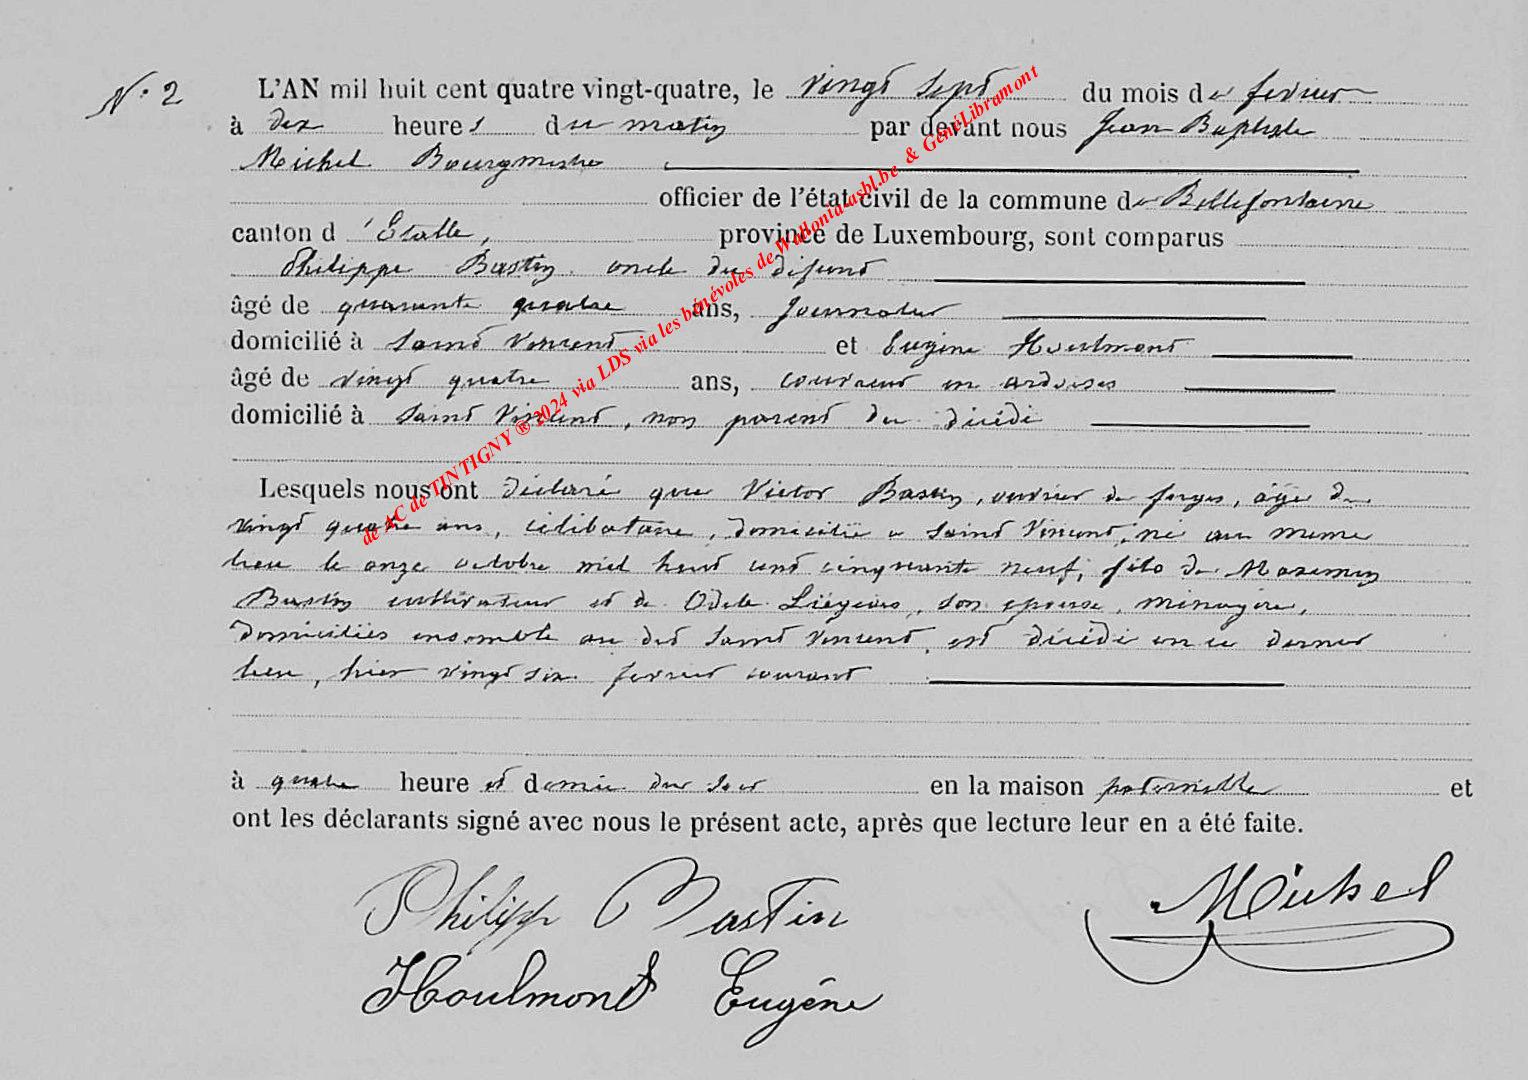 N° 2
L'AN mil huit cent quatre vingt-quatre, le vingt sept du mois de février
à dix heures du matin par devant nous Jean Baptiste
Michel Bourgmestre
officier de l'état civil de la commune de Bellefontaine
canton d'Etalle, province de Luxembourg, sont comparus
Philippe Bastin oncle du défunt
âgé de quarante quatre ans, journalier
domicilié à Saint Vincent et Eugène Houlmont
âgé de vingt quatre ans, couvreur en ardoises
domicilié à Saint Vincent, non parent du décédé
Lesquels nous ont déclaré que Victor Bastin, ouvrier de forges, âgé de
vingt quatre ans, célibataire, domicilié à Saint Vincent, né au même
lieu le onze octobre mil huit cent cinquante neuf, fils de Maximin
Bastin cultivateur et de Odile Liégeois, son épouse, ménagère,
domiciliés ensemble au dit Saint Vincent, est décédé en ce dernier
lieu, hier vingt six février courant
à quatre heure et demie du soir en la maison paternelle et
ont les déclarants signé avec nous le présent acte, après que lecture leur en a été faite.
Philipp Bastin
Michel
Houlmont Eugéne
de AC de TINTIGNY ® 2024 via LDS via les bénévoles de Wallonia-asbl.be & GénéLibramont